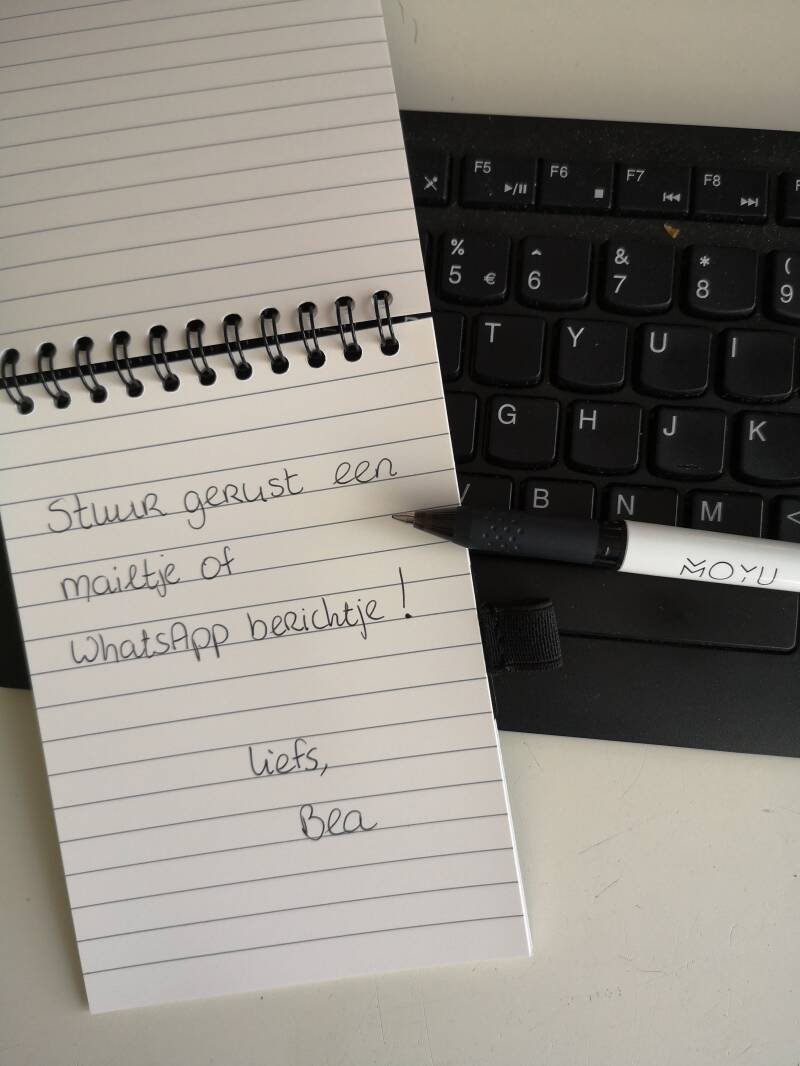 F5 F6 F7 F8
% 5 € ^ 6 & 7 * 8 ( 9
T Y U I
G H J K
V B N M <
MOYU
Stuur gerust een
mailtje of
WhatsApp berichtje!
liefs,
Bea